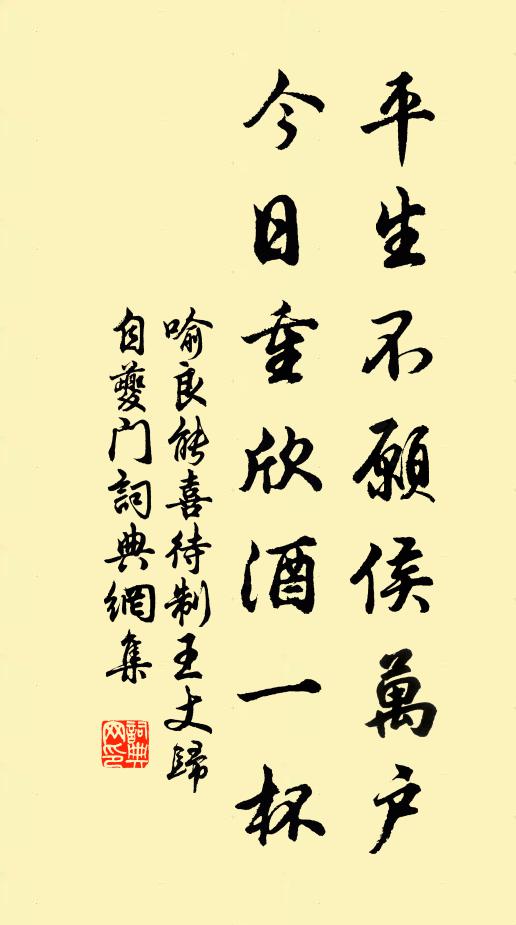 平生不願侯萬戶
今日重欣酒一杯
喻良能喜待制王丈歸
自夔門詞典網集
詞典網印